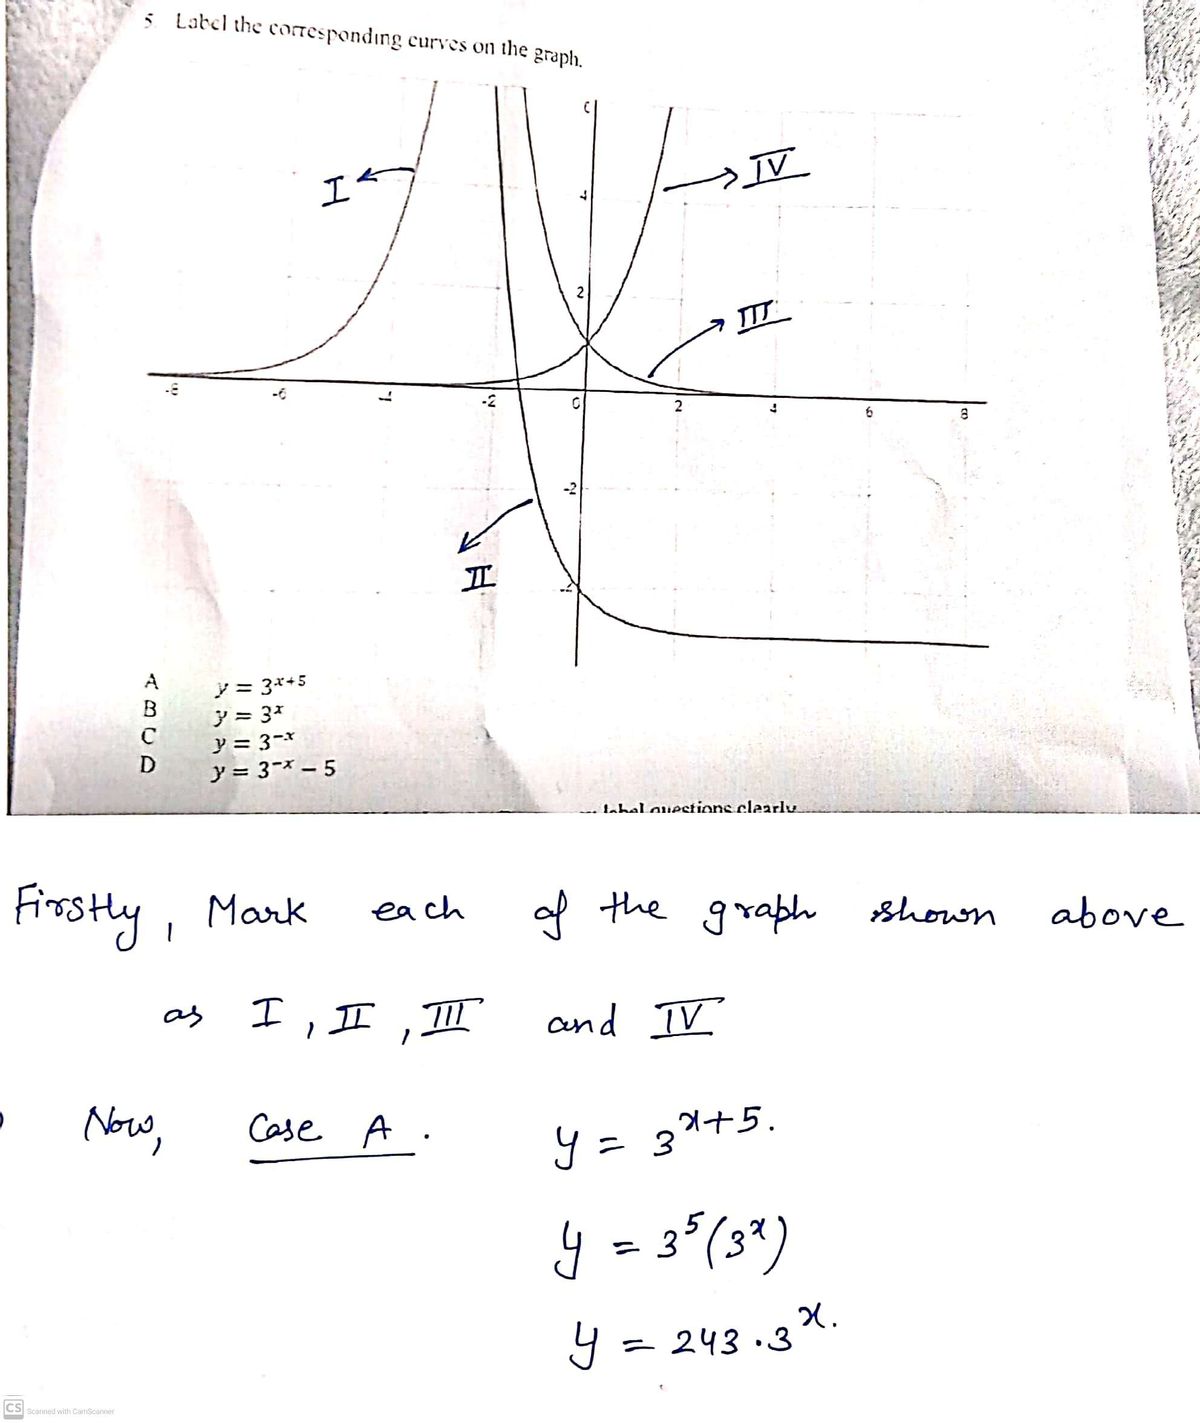 5. Label the corresponding curves on the graph.
I
IV
4
2
III
-8 -6 -4 -2 0 2 4 6 8
-2
II
A y = 3^{x+5}
B y = 3^x
C y = 3^{-x}
D y = 3^{-x} - 5
label questions clearly
Firstly, Mark each of the graph shown above
as I, II, III and IV
Now, Case A. y = 3^{x+5}.
y = 3^5(3^x)
y = 243 · 3^x.
CS Scanned with CamScanner